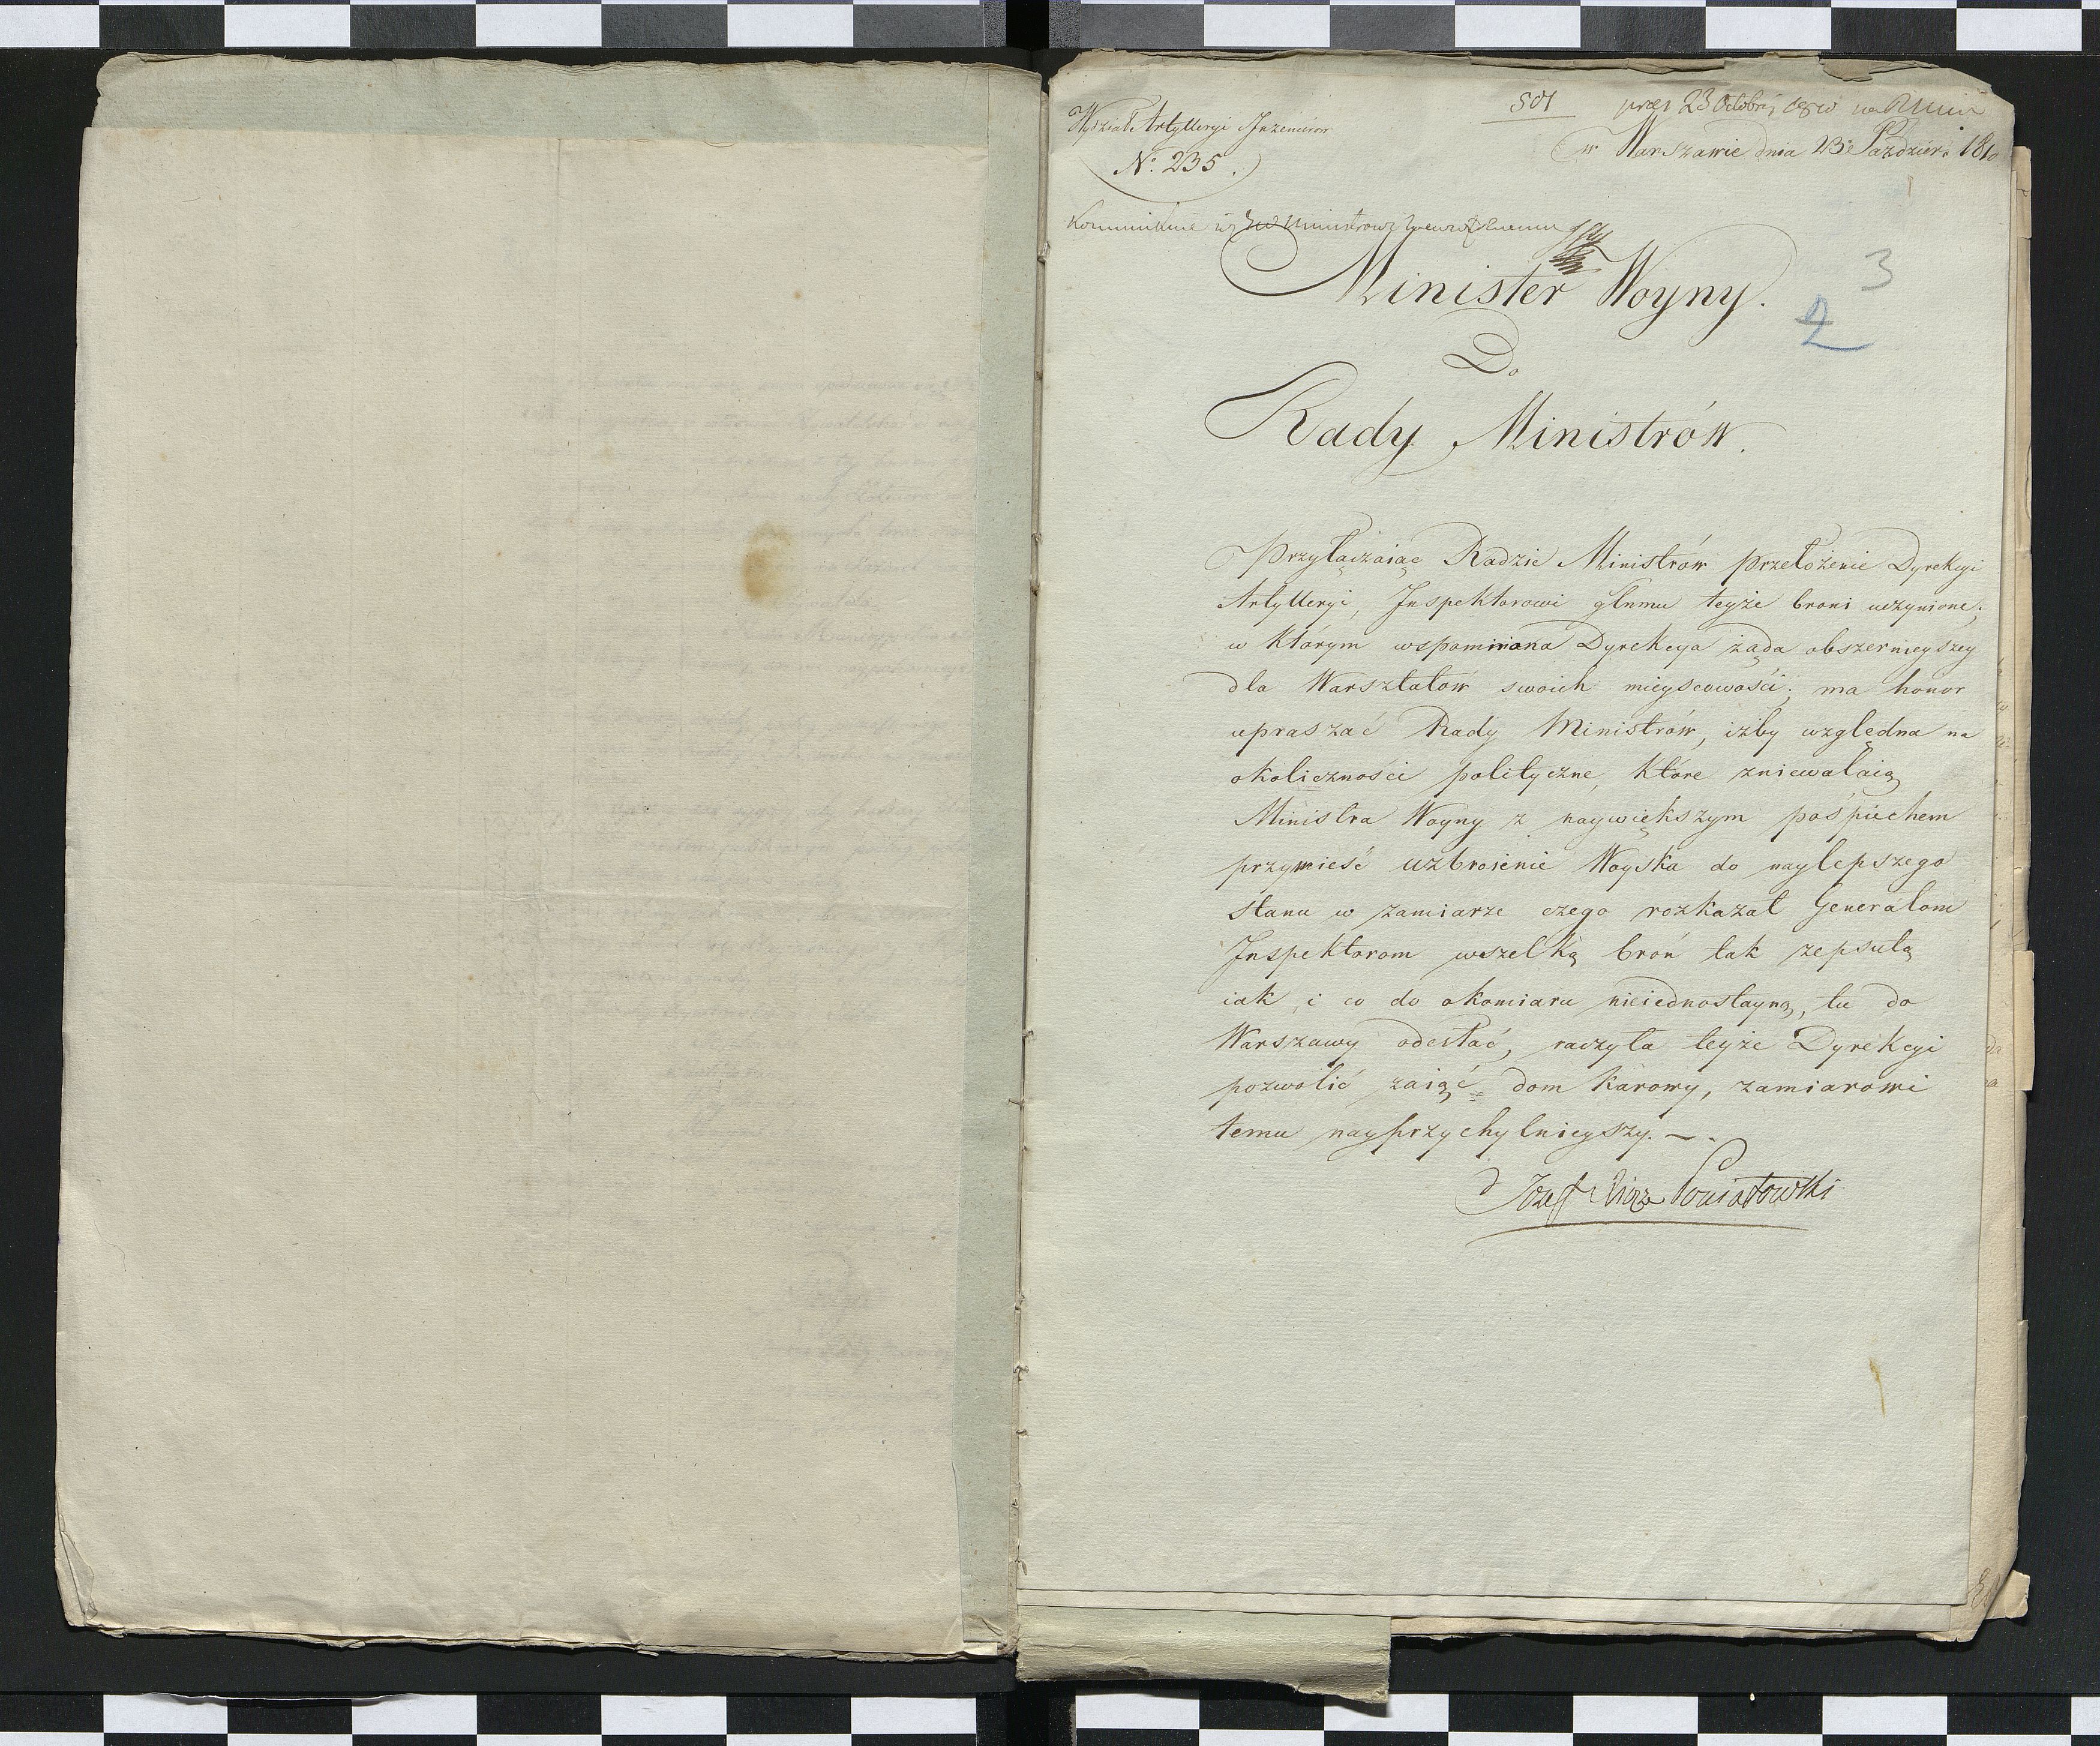 Wydział Artylleryi Inzenierow
N: 235.
501
praes 23 Octobris
w Warszawie dnia 23 Paździer: 1810
3
2
Minister Woyny.
Do
Rady Ministrów.
Przyłączaiąc Radzie Ministrów przełożenie Dyrekcyi
Artylleryi, Inspektorowi głnmu teyże broni uczynione;
w którym wspomniona Dyrekcya żąda obszernieyszey
dla Warsztatów swoich mieyscowości; ma honor
upraszać Rady Ministrów, iżby względna na
okoliczności polityczne, które zniewalaią
Ministra Woyny z naywiększym pośpiechem
przynieść uzbroienie Woyska do naylepszego
stanu w zamiarze czego rozkazał Generałom
Inspektorom wszelką broń tak zepsutą
iak i co do okomiaru nieiednostayną, tu do
Warszawy odesłać, raczyła teyże Dyrekcyi
pozwolić zaiąć dom Karowy, zamiarowi
temu nayprzychylnieyszy. —
Józef Xiąże Poniatowski